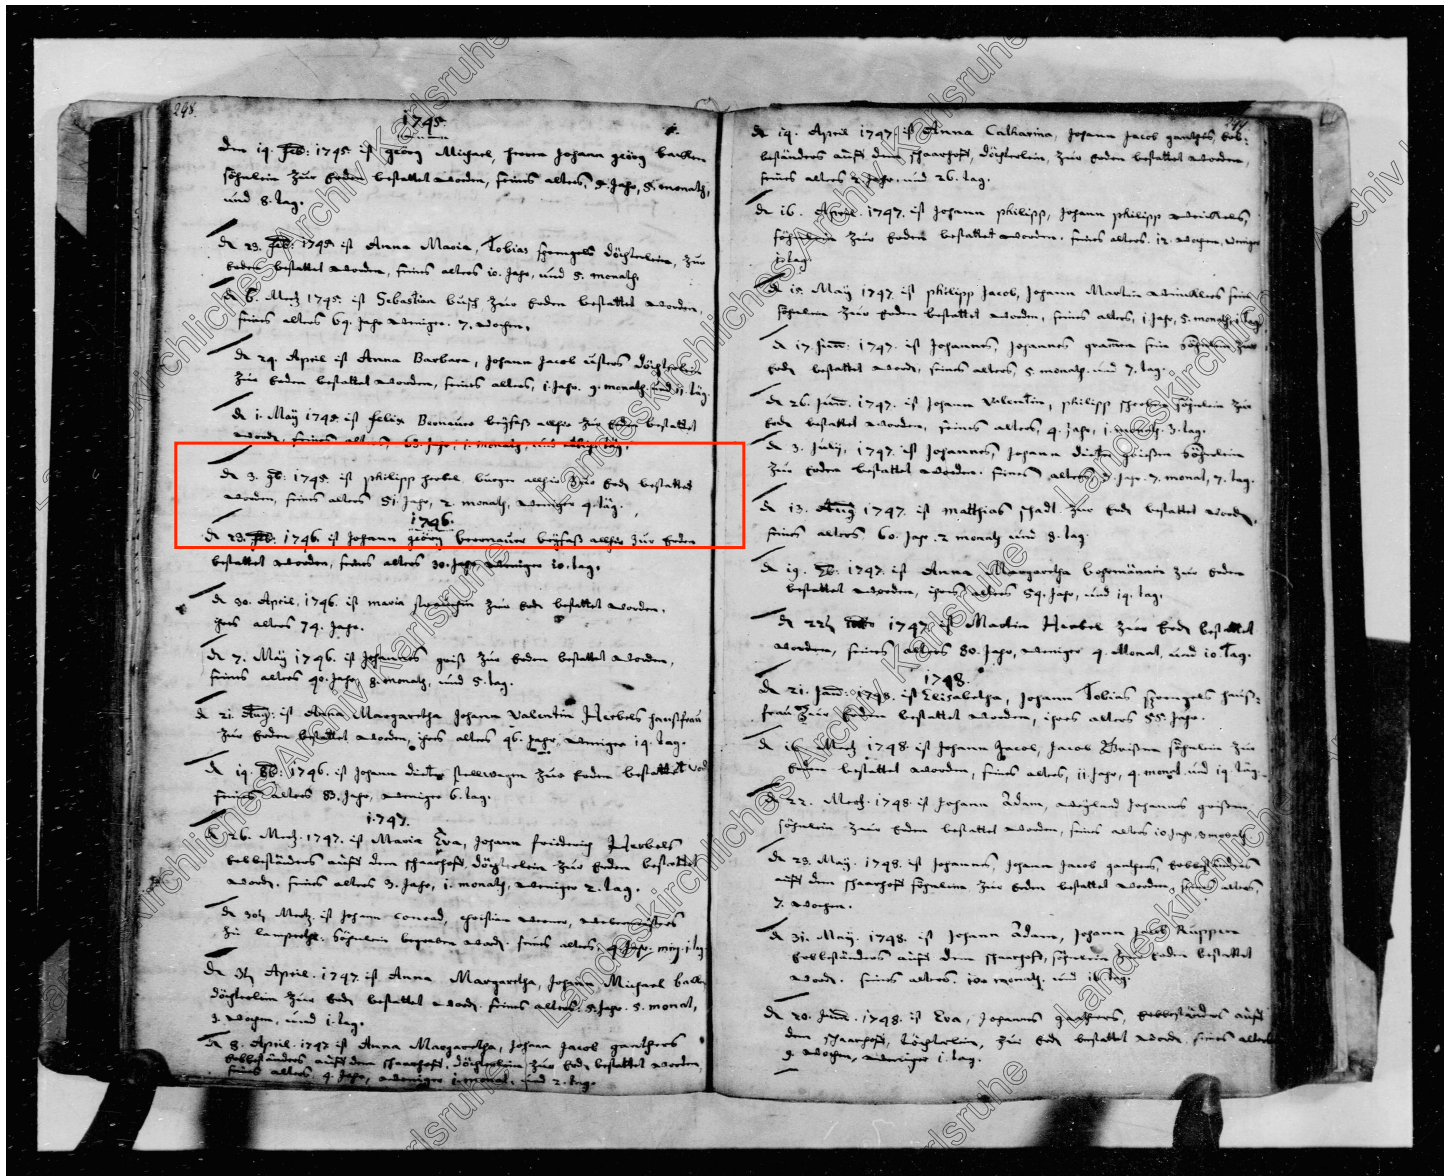 298.
1745.
den 19. Feb: 1745 ist georg Michael, Johann georg
söhnlein zur Erden bestattet worden, seines alters, 5. Jahr, 8. monath,
und 8. tag.
de 23. Feb: 1745 ist Anna Maria, Tobias Sprengels döchterlein, zur
Erden bestattet worden, seines alters 10. Jahr, und 5. monath.
de 6. Mertz 1745. ist Sebastian busch zur Erden bestattet worden,
seines alters 69. Jahr weniger. 7. wochen.
de 29. April ist Anna Barbara, Johann Jacob döchterlein
zur Erden bestattet worden, seines alters, 1. Jahr. 9. monath. und 11. tag.
de 1. May 1745. ist felix Bernauer beysaß allhier zur Erden bestattet
worden, seines alters 63. Jahr, monath, und tag.
de 3. 1745. ist philipp herbel burger allhier zur Erden bestattet
worden, seines alters 51. Jahr, 2. monath, weniger 4. tag.
1746.
de 23. Feb: 1746. ist Johann georg bernauer beysaß allhier zur Erden
bestattet worden, seines alters 30. Jahr, weniger 10. tag.
de 30. April. 1746. ist maria zur Erden bestattet worden,
ihres alters 74. Jahr.
de 7. May 1746. ist Johannes geiß zur Erden bestattet worden,
seines alters 40. Jahr, 8. monath, und 5. tag.
de 21. Aug: ist Anna Margaretha Johann Valentin Herbels haußfrau
zur Erden bestattet worden, ihres alters 46. Jahr, weniger 14. tag.
de 19. 1746. ist Johann dieter stellwagen zur Erden bestattet word
seines alters 83. Jahr, weniger 6. tag.
1747.
de 26. Mertz. 1747. ist Maria Eva, Johann friderich Herbels
Erbbeständers auff dem schaarhoff, döchterlein zur Erden bestattet
worden. seines alters 3. Jahr, 1. monath, weniger 2. tag.
de 30 Mertz. ist Johann Conrad, christian
zu söhnlein begraben worden. seines alters, 4. Jahr.
de 3 April. 1747. ist Anna Margaretha, Johann Michael
döchterlein zur Erden bestattet worden. seines alters. 5. Jahr. 5. monat,
3. wochen, und 1. tag.
de 8. April. 1747 ist Anna Margaretha, Johann Jacob ganthers
Erbbeständers auff dem schaarhoff, döchterlein zur Erden bestattet worden,
seines alters. 4. Jahr, weniger 1. monat. und 2. tag.
de 14. April 1747. ist Anna Catharina, Johann Jacob ganthers Erb-
beständers auff dem schaarhoff, döchterlein, zur Erden bestattet worden,
seines alters 2. Jahr, und 26. tag.
de 16. April. 1747. ist Johann philipp, Johann philipp Winklers,
söhnlein zur Erden bestattet worden. seines alters. 12. wochen, weniger
1. tag.
de 15. May 1747. ist philipp Jacob, Johann Martin Winklers
söhnlein zur Erden bestattet worden, seines alters, 1. Jahr, 5. monath, 1. tag.
de 17. Jun: 1747. ist Johannes, Johannes söhnlein zur
Erden bestattet worden, seines alters 5. monath. und 7. tag.
de 26. Jun: 1747. ist Johann Valentin, philipp söhnlein zur
Erden bestattet worden, seines alters, 4. Jahr, 1. monath. 3. tag.
de 3. July, 1747. ist Johannes, Johann dieter geißen söhnlein
zur Erden bestattet worden. seines alters Jahr. 7. monat, 7. tag.
de 13. Aug 1747. ist matthias stadt zur Erden bestattet worden,
seines alters. 60. Jahr. 2 monath und 8. tag.
de 19. 1747. ist Anna Margaretha zur Erden
bestattet worden, ihres alters 54. Jahr, und 14. tag.
de 22 1747. ist Martin Herbel zur Erden bestattet
worden, seines alters 80. Jahr, weniger 4 Monat, und 10. tag.
1748.
de 21. Jan: 1748. ist Elisabetha, Johann Tobias sprengels hauß-
frau zur Erden bestattet worden, ihres alters 55. Jahr.
de 16. Mertz 1748. ist Johann Jacob, Jacob söhnlein zur
Erden bestattet worden, seines alters, 11. Jahr, 4. monat. und 19. tag.
de 22. Mertz. 1748. ist Johann Adam, weyland Johannes geißen
söhnlein zur Erden bestattet worden, seines alters 10. Jahr, 3. monath
de 23. May. 1748. ist Johannes, Johann Jacob ganthers, Erbbeständers
auff dem schaarhoff söhnlein zur Erden bestattet worden, seines alters,
7. wochen.
de 31. May. 1748. ist Johann Adam, Johann Jacob Ruppert
Erbbeständers auff dem schaarhoff, söhnlein zur Erden bestattet
worden. seines alters. monath. und 16. tag.
de 20. Jun: 1748. ist Eva, Johannes ganthers, Erbbeständers auff
dem schaarhoff, döchterlein, zur Erden bestattet worden, seines alters
9. wochen, weniger 1. tag.
Landeskirchliches Archiv Karlsruhe